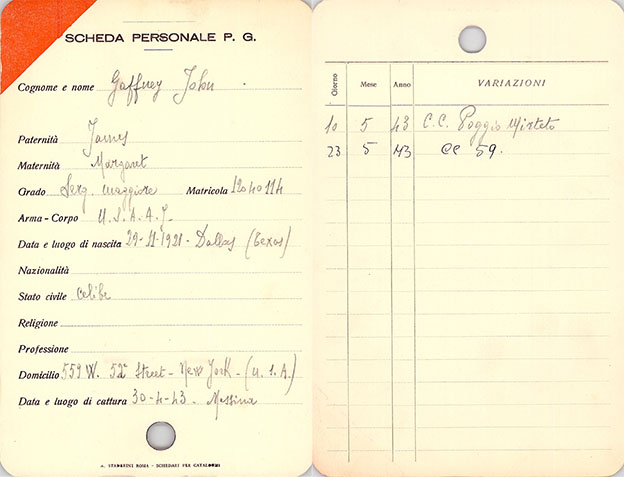 SCHEDA PERSONALE P. G.
Cognome e nome Gaffney John
Paternità James
Maternità Margaret
Grado Serg. maggiore Matricola 12040114
Arma - Corpo U.S.A.A.F.
Data e luogo di nascita 29-11-1921 - Dallas (Texas)
Nazionalità
Stato civile celibe
Religione
Professione
Domicilio 559 W. 52ª Street - New York - (U.S.A.)
Data e luogo di cattura 30-4-43 - Messina
STADERINI ROMA - SCHEDARI PER CATALOGHI
Giorno Mese Anno VARIAZIONI
10 5 43 C.C. Poggio Mirteto
23 5 43 CC 59.